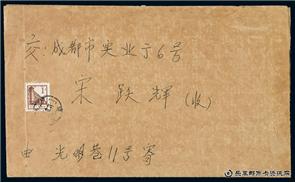 交：成都市实业于6号
宋跃辉（收）
由 光明巷11号寄